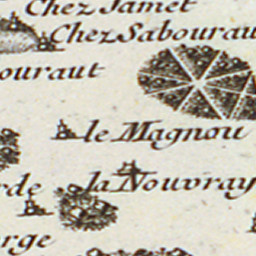 Chez Jamet
Chez Sabourau
ouraut
le Magnou
rde la Nouvray
rge